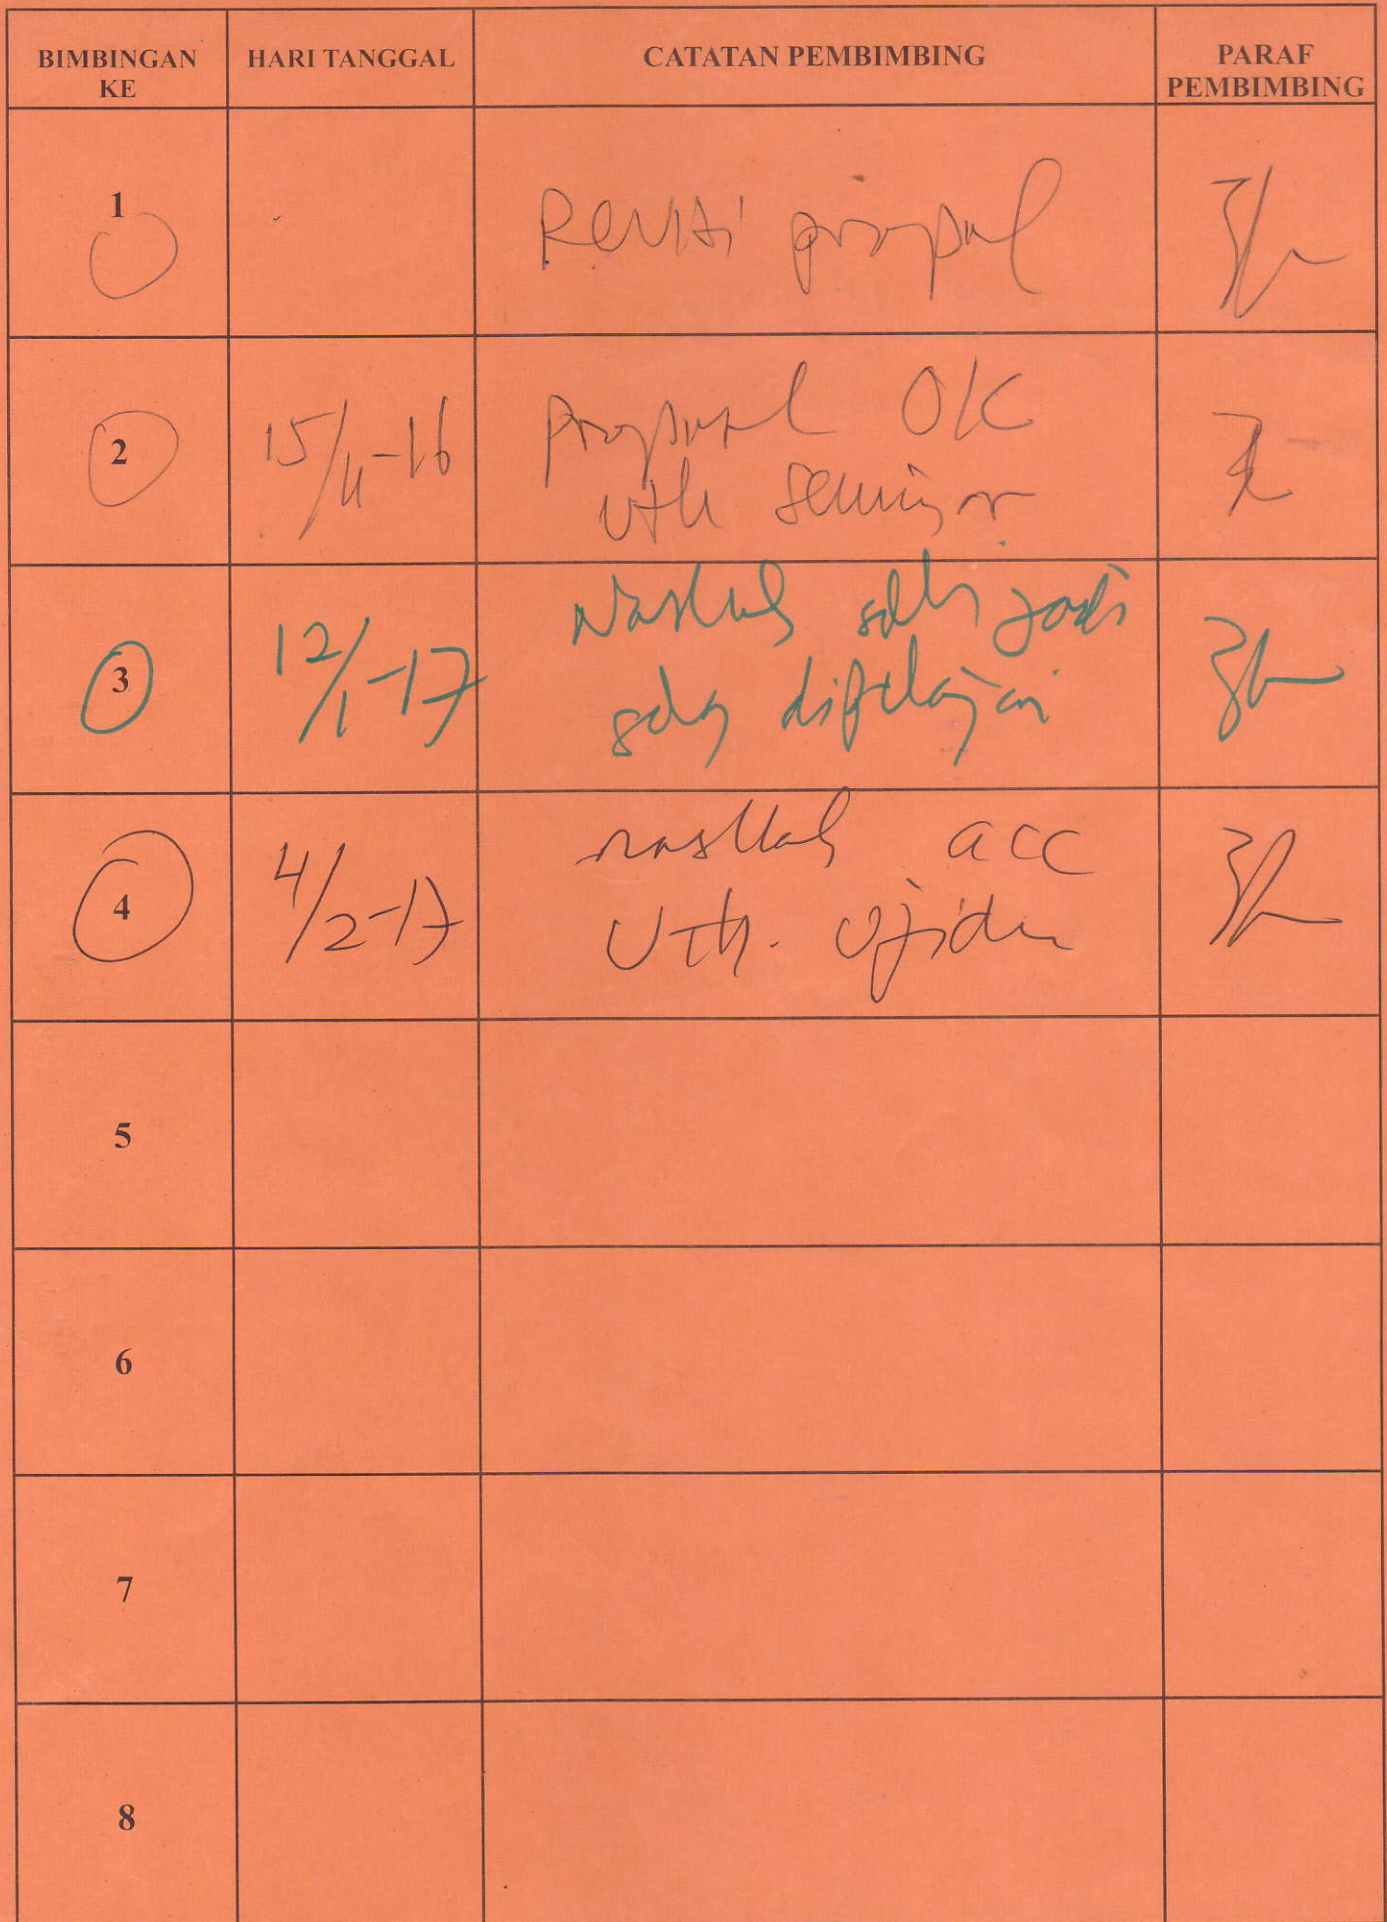 BIMBINGAN KE
HARI TANGGAL
CATATAN PEMBIMBING
PARAF PEMBIMBING
1
Revisi proposal
2
15/11-16
Proposal OK
utk seminar
3
12/1-17
Naskah sdh jadi
sdg dipelajari
4
4/2-17
naskah acc
utk. ujian
5
6
7
8